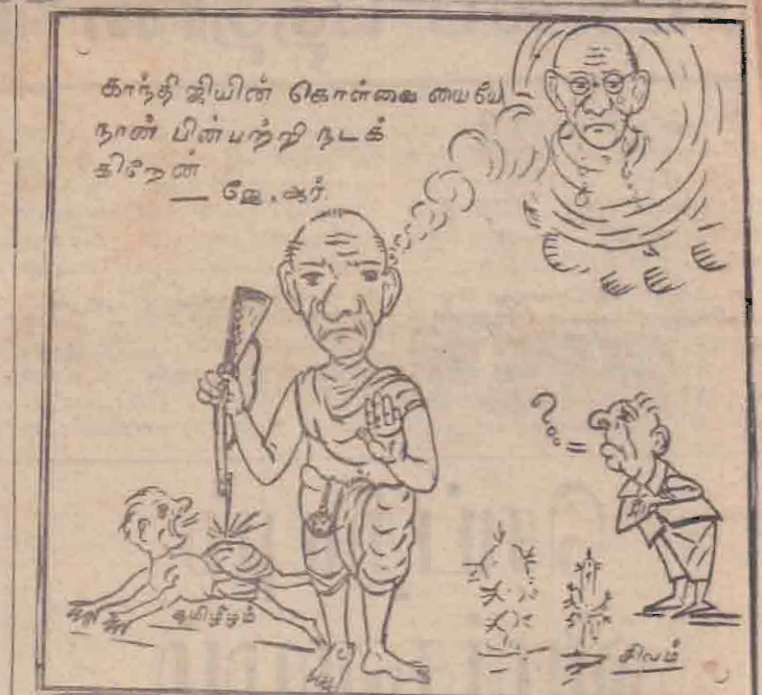 காந்தி ஜியின் கொள்கை யையே
நான் பின்பற்றி நடக்
கிறேன்
— ஜே. ஆர்.
?
தமிழீழம்
சிவம்